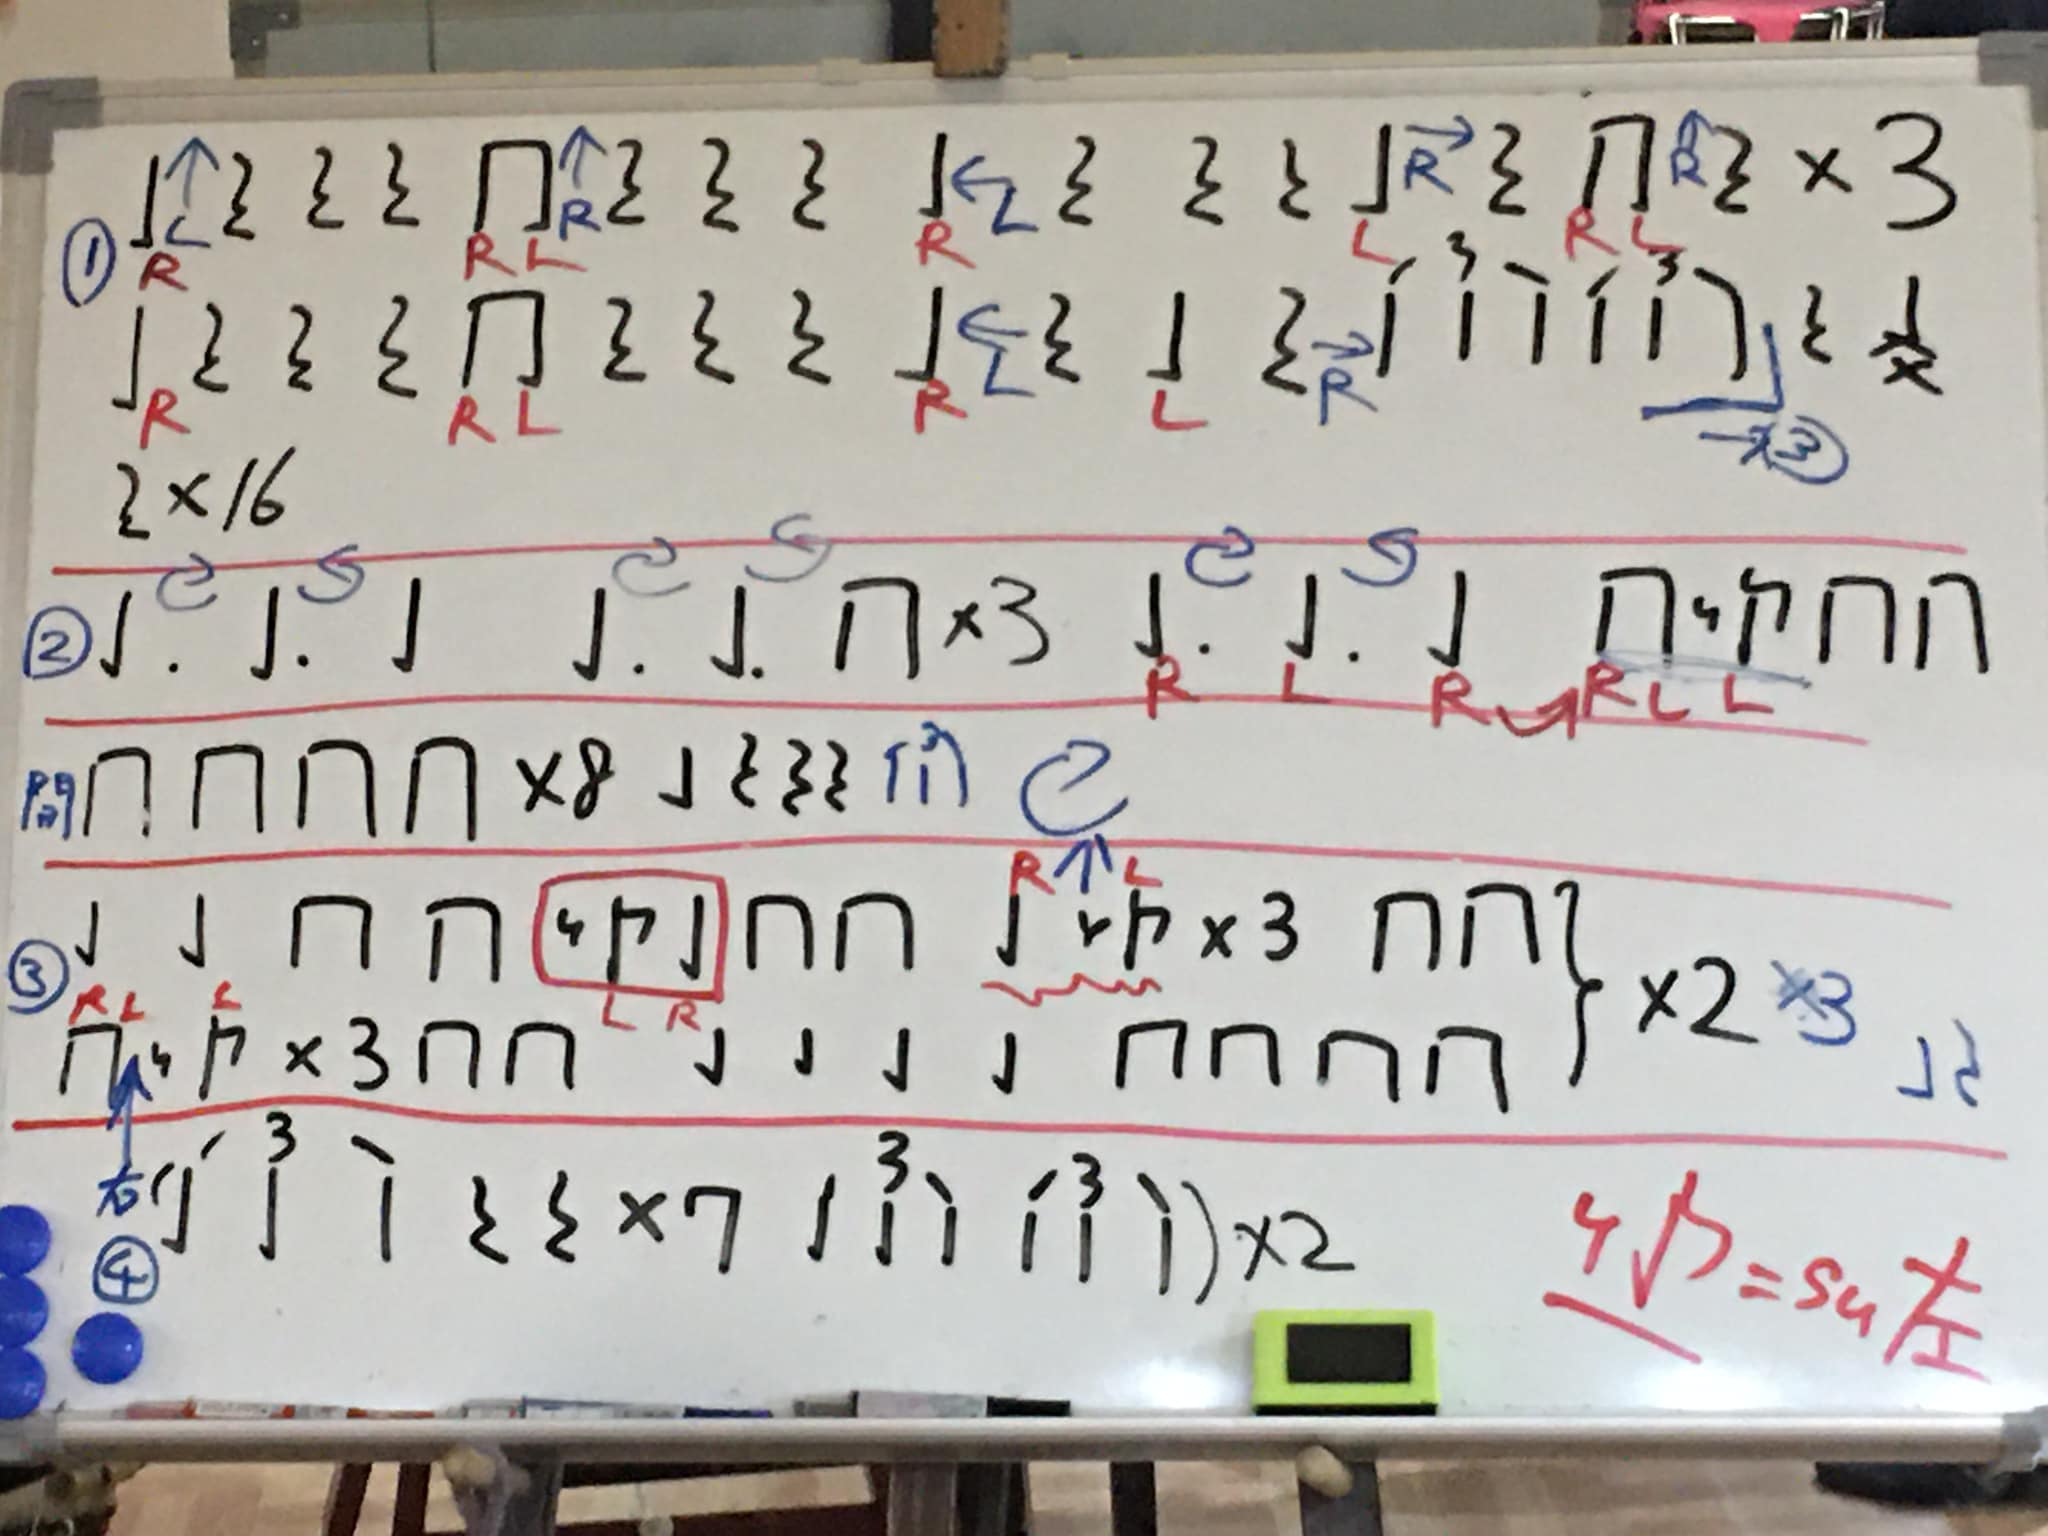 ① ♩ L ↑ 𝄽 𝄽 𝄽 ♫ R ↑ 𝄽 𝄽 𝄽 ♩ ← L 𝄽 𝄽 𝄽 ♩ R → 𝄽 ♫ R ↑ 𝄽 × 3
R R L R L R L
♩ 𝄽 𝄽 𝄽 ♫ 𝄽 𝄽 𝄽 ♩ ← L 𝄽 ♩ 𝄽 R → 3 3 𝄽
R R L R L → ×③
𝄽 × 16
② ♩. ♩. ♩ ♩. ♩. ♫ × 3 ♩. ♩. ♩ ♫ 𝄾 ♪ ♫ ♫
R L R R L L
間 ♫ ♫ ♫ ♫ × 8 ♩ 𝄽 𝄽 𝄽 3
R ↑ L
③ ♩ ♩ ♫ ♫ 𝄾 ♪ ♩ ♫ ♫ ♩ 𝄾 ♪ × 3 ♫ ♫ } × 2 × 3
R L L L R
♫ 𝄾 ♪ × 3 ♫ ♫ ♩ ♩ ♩ ♩ ♫ ♫ ♫ ♫ ♩ 𝄽
右
④ ( 3 𝄽 𝄽 × 7 3 3 ) × 2
𝄾 ♪ = Su